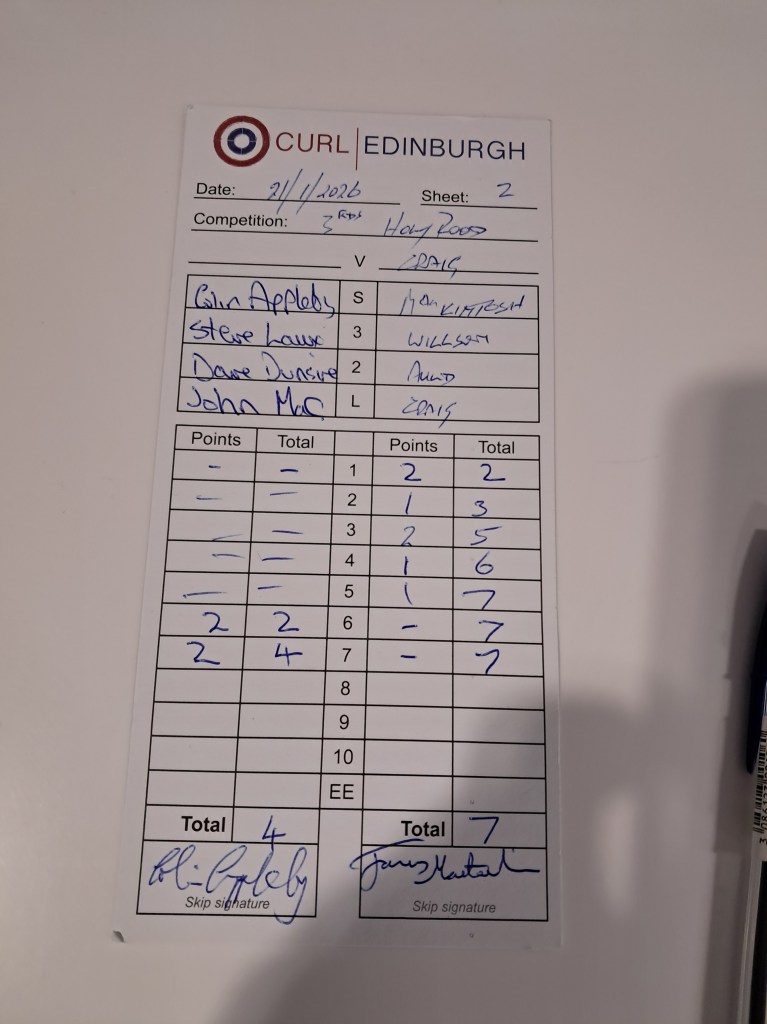 CURL | EDINBURGH
Date: 21/1/2026 Sheet: 2
Competition: 3 Holy Rood
V CRAIG
Colin Appleby S MacKINTOSH
Steve 3 WILLSON
Dave Dunsire 2 AULD
John Mac. L CRAIG
Points Total Points Total
- - 1 2 2
- - 2 1 3
- - 3 2 5
- - 4 1 6
- - 5 1 7
2 2 6 - 7
2 4 7 - 7
8
9
10
EE
Total 4 Total 7
Colin Appleby James
Skip signature Skip signature